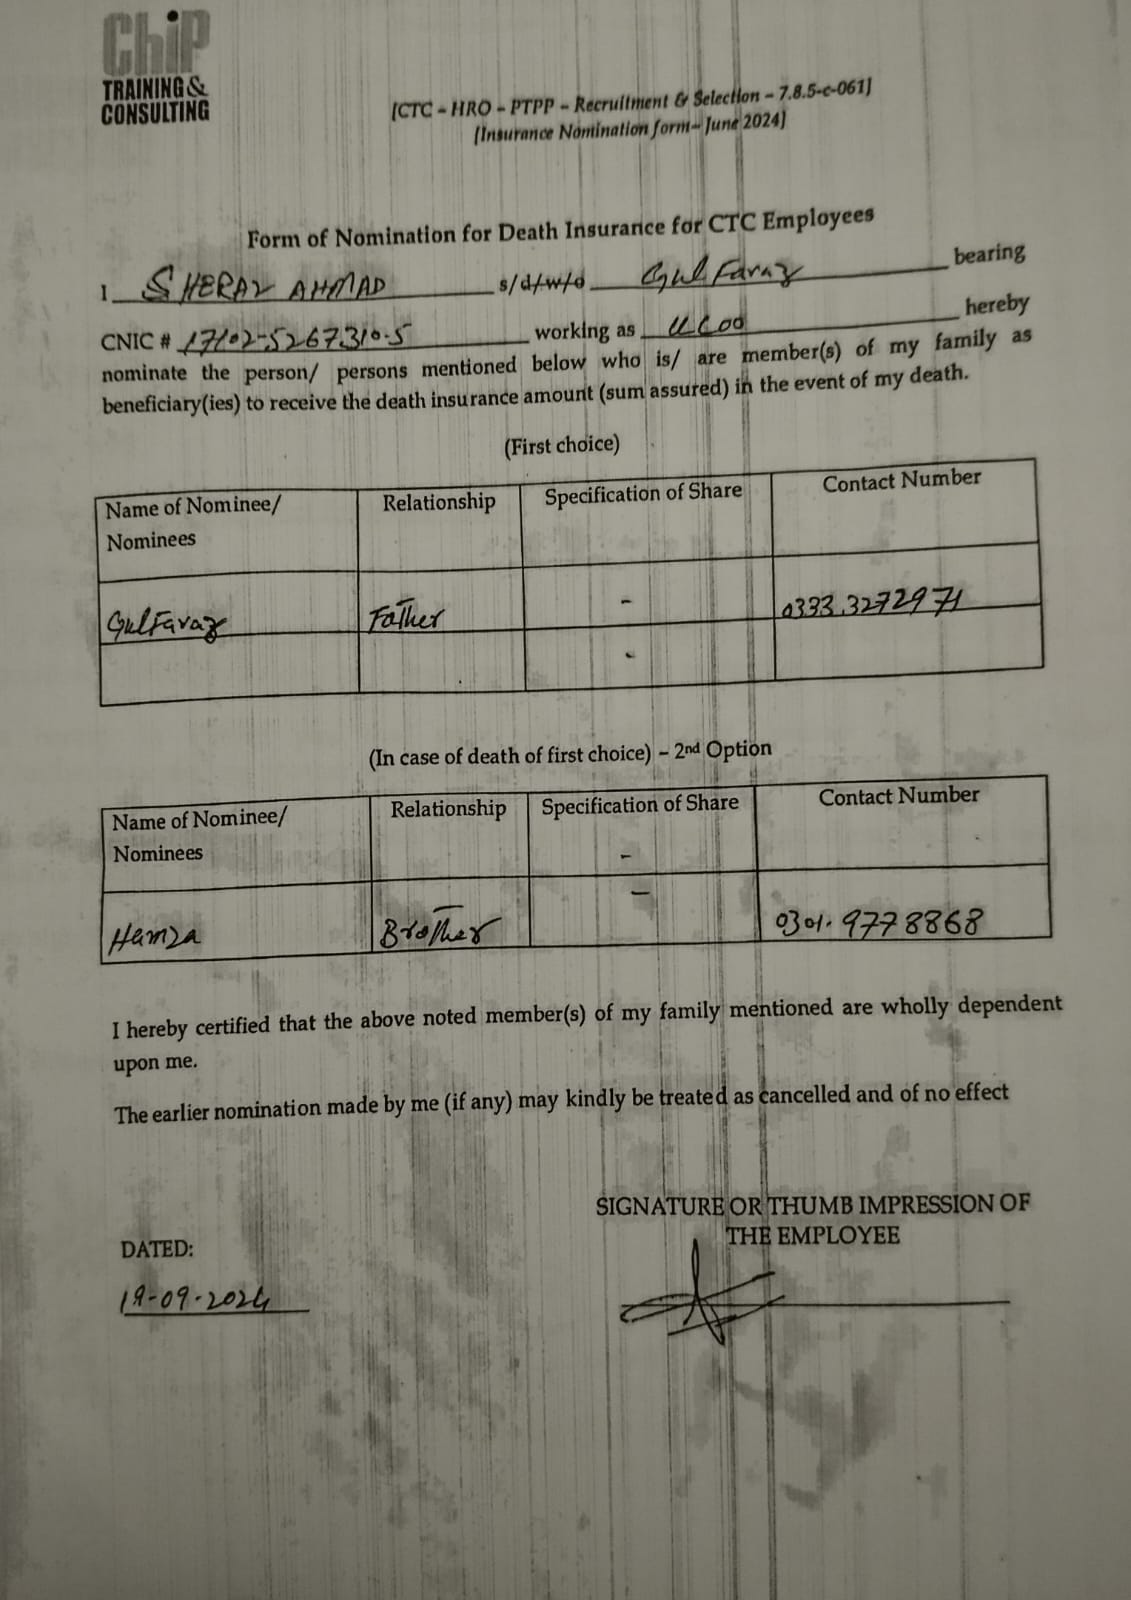 ChiP
TRAINING &
CONSULTING
[CTC – HRO – PTPP – Recruitment & Selection – 7.8.5-c-061]
[Insurance Nomination form– June 2024]
Form of Nomination for Death Insurance for CTC Employees
I SHERAZ AHMAD s/d/w/o Gul Faraz bearing
CNIC # 17102-5267310-5 working as UCOO hereby
nominate the person/ persons mentioned below who is/ are member(s) of my family as
beneficiary(ies) to receive the death insurance amount (sum assured) in the event of my death.
(First choice)
Name of Nominee/ Relationship Specification of Share Contact Number
Nominees
Gul Faraz Father - 0333.3272971
-
(In case of death of first choice) – 2nd Option
Name of Nominee/ Relationship Specification of Share Contact Number
Nominees -
Hamza Brother - 0301.9778868
I hereby certified that the above noted member(s) of my family mentioned are wholly dependent
upon me.
The earlier nomination made by me (if any) may kindly be treated as cancelled and of no effect
SIGNATURE OR THUMB IMPRESSION OF
THE EMPLOYEE
DATED:
19-09-2024